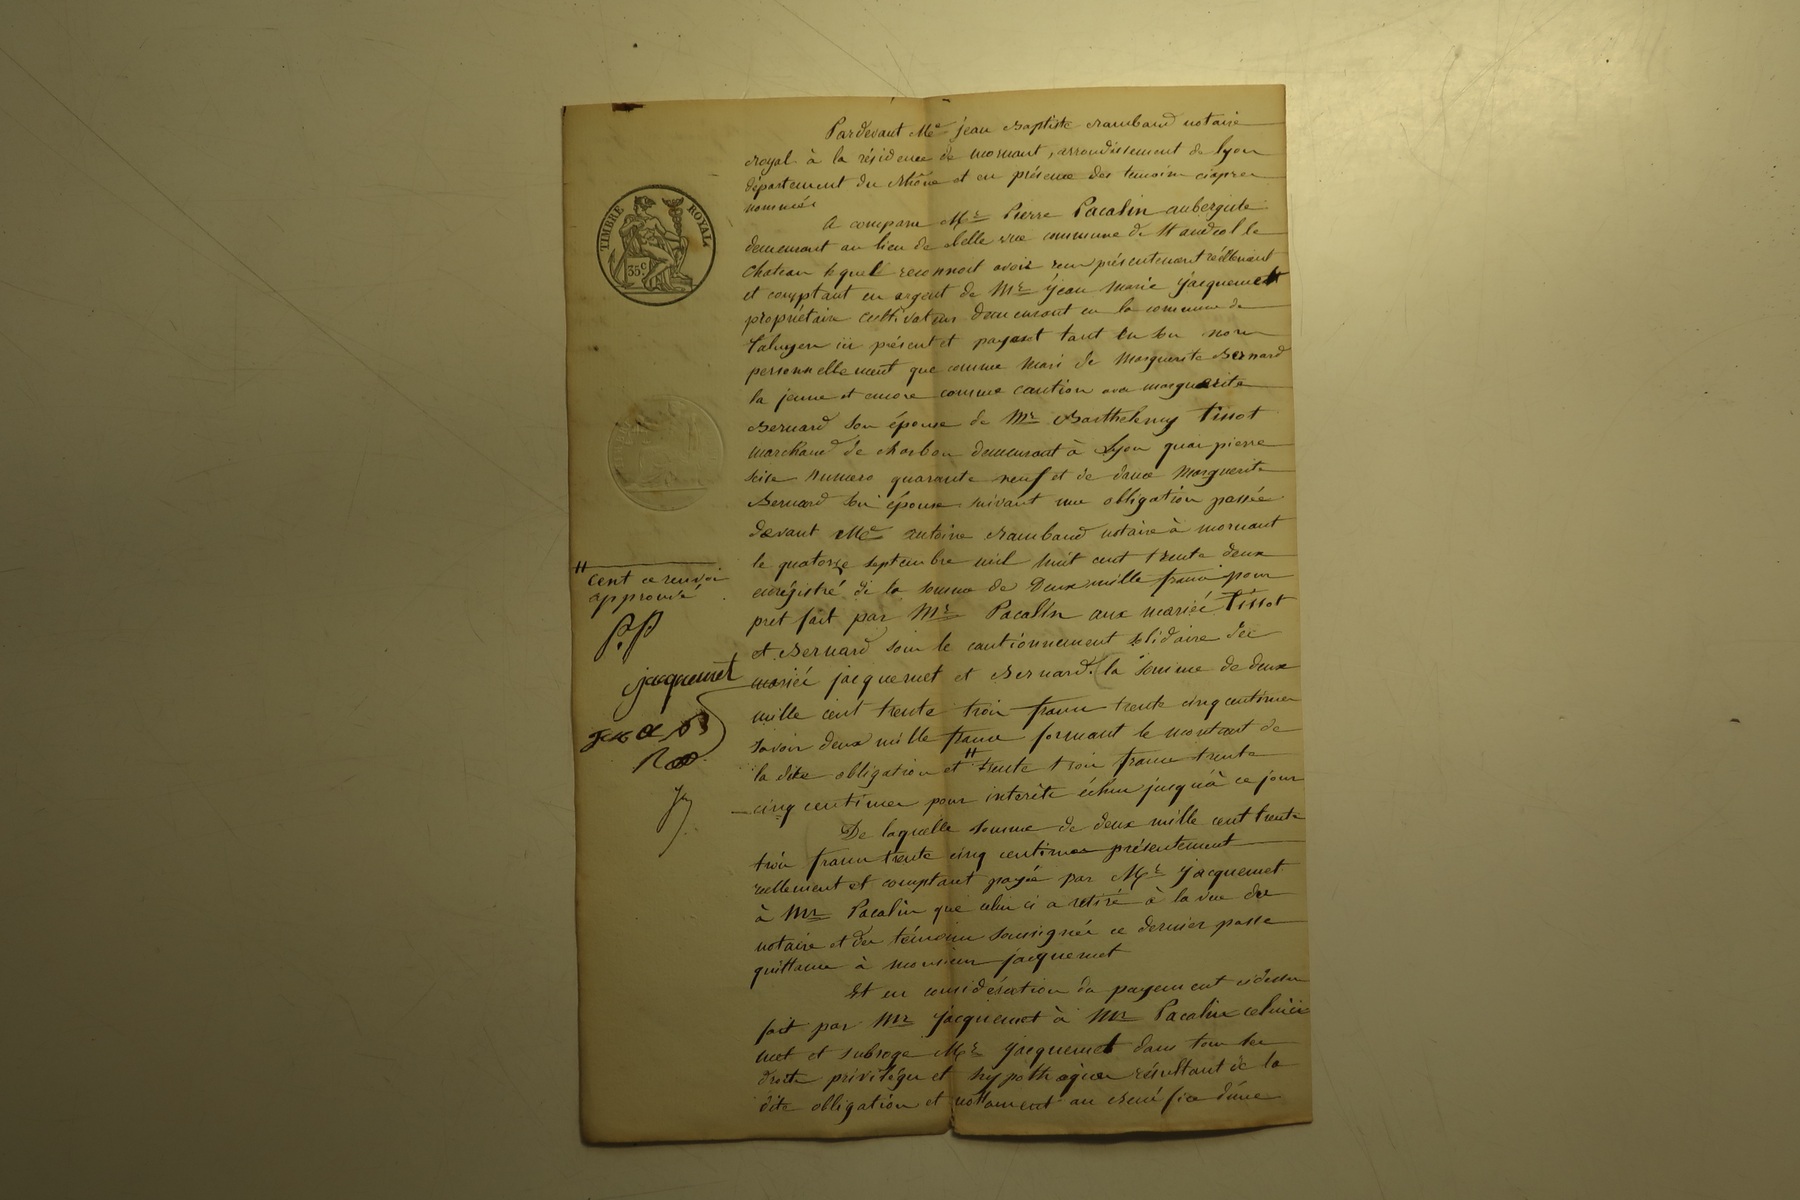 TIMBRE ROYAL
35c
Pardevant Me jean Baptiste Rambaud notaire
royal à la résidence de mornant, arrondissement de lyon
département du Rhône et en présence des temoins ciapres
nommés
A comparu Mr Pierre Pacalin aubergiste
demeurant au lieu de Belle vue commune de St andeol le
chateau lequel reconnoit avoir recu présentement réellement
et comptant en argent de Mr jean marie jacquemet
propriétaire cultivateur demeurant en la commune de
Taluyers ici présent et payant tant en son nom
personnellement que comme mari de Marguerite Bernard
la jeune et encore comme caution avec marguerite
Bernard son épouse de Mr Barthelemy tissot
marchand de charbon demeurant à Lyon quai pierre
scize numero quarante neuf et de dame Marguerite
Bernard son épouse suivant une obligation passée
devant Me antoine Rambaud notaire à mornant
le quatorze septembre mil huit cent trente deux
enregistré de la somme de Deux mille francs pour
pret fait par Mr Pacalin aux mariés Tissot
et Bernard sous le cautionnement solidaire des
mariés jacquemet et Bernard. (la somme de deux
mille cent trente trois francs trente cinq centimes
savoir deux mille francs formant le montant de
la dite obligation et # trente trois francs trente
cinq centimes pour interêts échus jusqu'à ce jour
De laquelle somme de deux mille cent trente
trois francs trente cinq centimes présentement
réellement et comptant payée par Mr jacquemet
à Mr Pacalin que celui ci a retiré à la vue du
notaire et des témoins soussignés ce dernier passe
quittance à monsieur jacquemet
Et en considération du payement cidessus
fait par Mr jacquemet à Mr Pacalin celuici
met et subroge Mr jacquemet dans tous ses
droits privilèges et hypothèques résultant de la
dite obligation et nottament au bénéfice d'une
# cent ce renvoi
approuvé
P.P
jacquemet